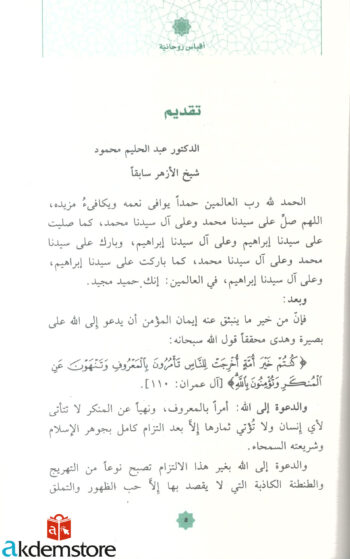 أقباس روحانية
تقديم
الدكتور عبد الحليم محمود
شيخ الأزهر سابقاً
الحمد لله رب العالمين حمداً يوافى نعمه ويكافىءُ مزيده،
اللهم صلِّ على سيدنا محمد وعلى آل سيدنا محمد، كما صليت
على سيدنا إبراهيم وعلى آل سيدنا إبراهيم، وبارك على سيدنا
محمد وعلى آل سيدنا محمد، كما باركت على سيدنا إبراهيم،
وعلى آل سيدنا إبراهيم، في العالمين: إنك حميد مجيد.
وبعد:
فإنّ من خير ما ينبثق عنه إيمان المؤمن أن يدعو إلى الله على
بصيرة وهدى محققاً قول الله سبحانه:
﴿كُنتُمْ خَيْرَ أُمَّةٍ أُخْرِجَتْ لِلنَّاسِ تَأْمُرُونَ بِالْمَعْرُوفِ وَتَنْهَوْنَ عَنِ
الْمُنكَرِ وَتُؤْمِنُونَ بِاللَّهِ﴾ [آل عمران: ١١٠].
والدعوة إلى الله: أمراً بالمعروف، ونهياً عن المنكر لا تتأتى
لأي إنسان ولا تُؤتي ثمارها إلاَّ بعد التزام كامل بجوهر الإسلام
وشريعته السمحاء.
والدعوة إلى الله بغير هذا الالتزام تصبح نوعاً من التهريج
والطنطنة الكاذبة التي لا يقصد بها إلاَّ حب الظهور والتملق
akdemstore